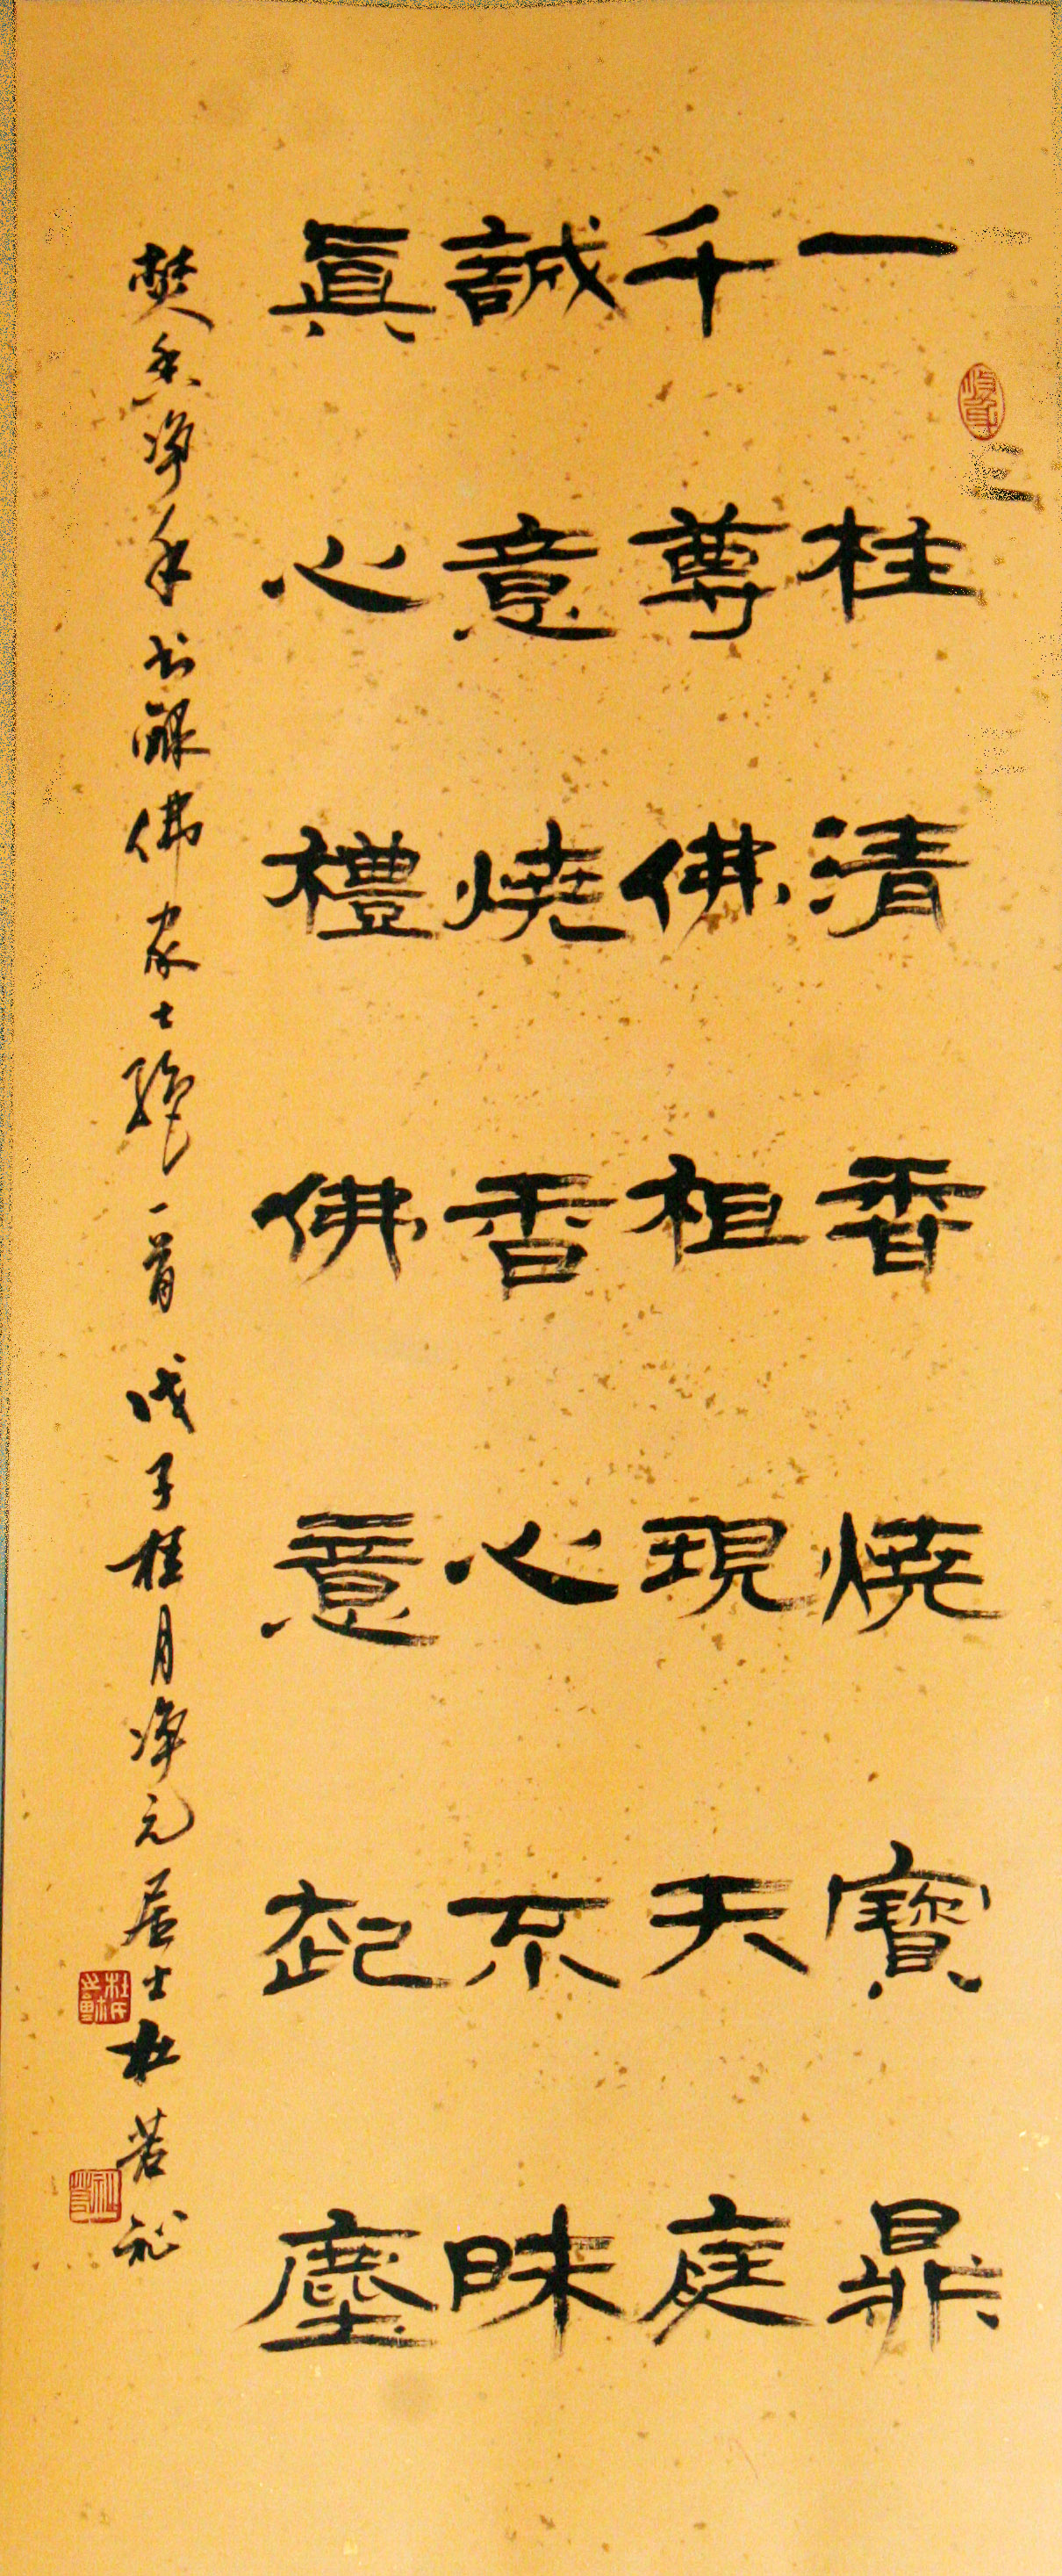 一柱清香燒寶鼎
千尊佛祖現天庭
誠意燒香心不昧
真心禮佛意起塵
焚香淨手書錄佛家七絕一首 戊子桂月淨元居士杜若